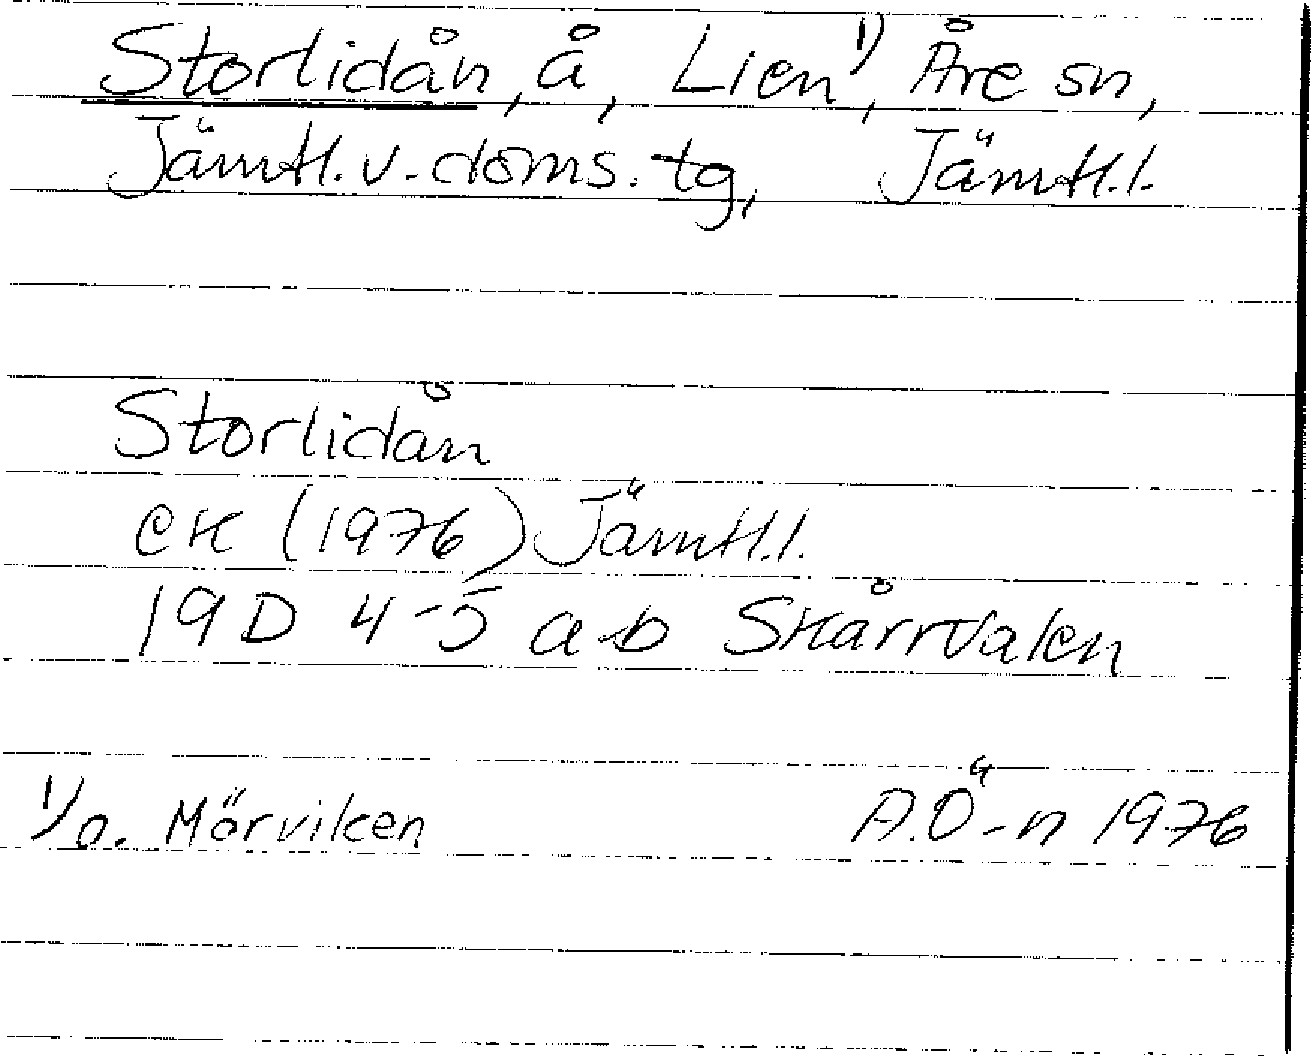 Storlidån, å, Lien¹⁾, Åre sn,
Jämtl. v. doms. tg, Jämtl.l.
Storlidån
ek (1976) Jämtl.l.
19D 4-5 a-b Skårrvalen
1/ o. Mörviken A.Ö-n 1976